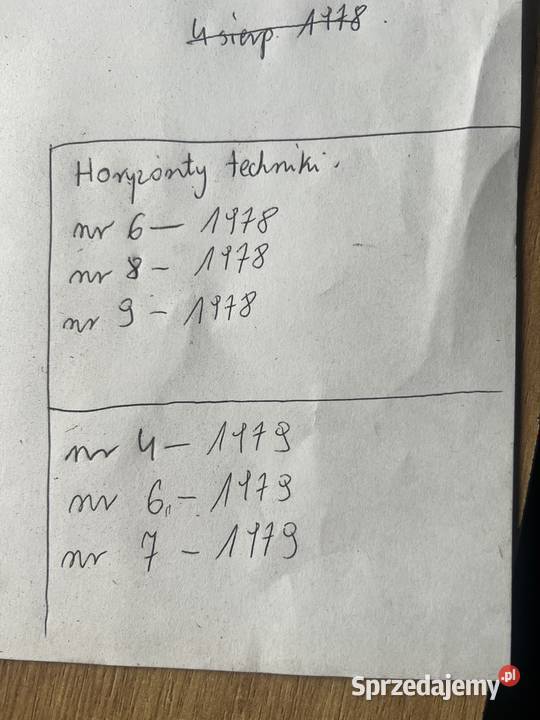 4 sierp. 1978.
Horyzonty techniki.
nr 6 — 1978
nr 8 - 1978
nr 9 - 1978
nr 4 - 1979
nr 6 - 1979
nr 7 - 1979
Sprzedajemy.pl